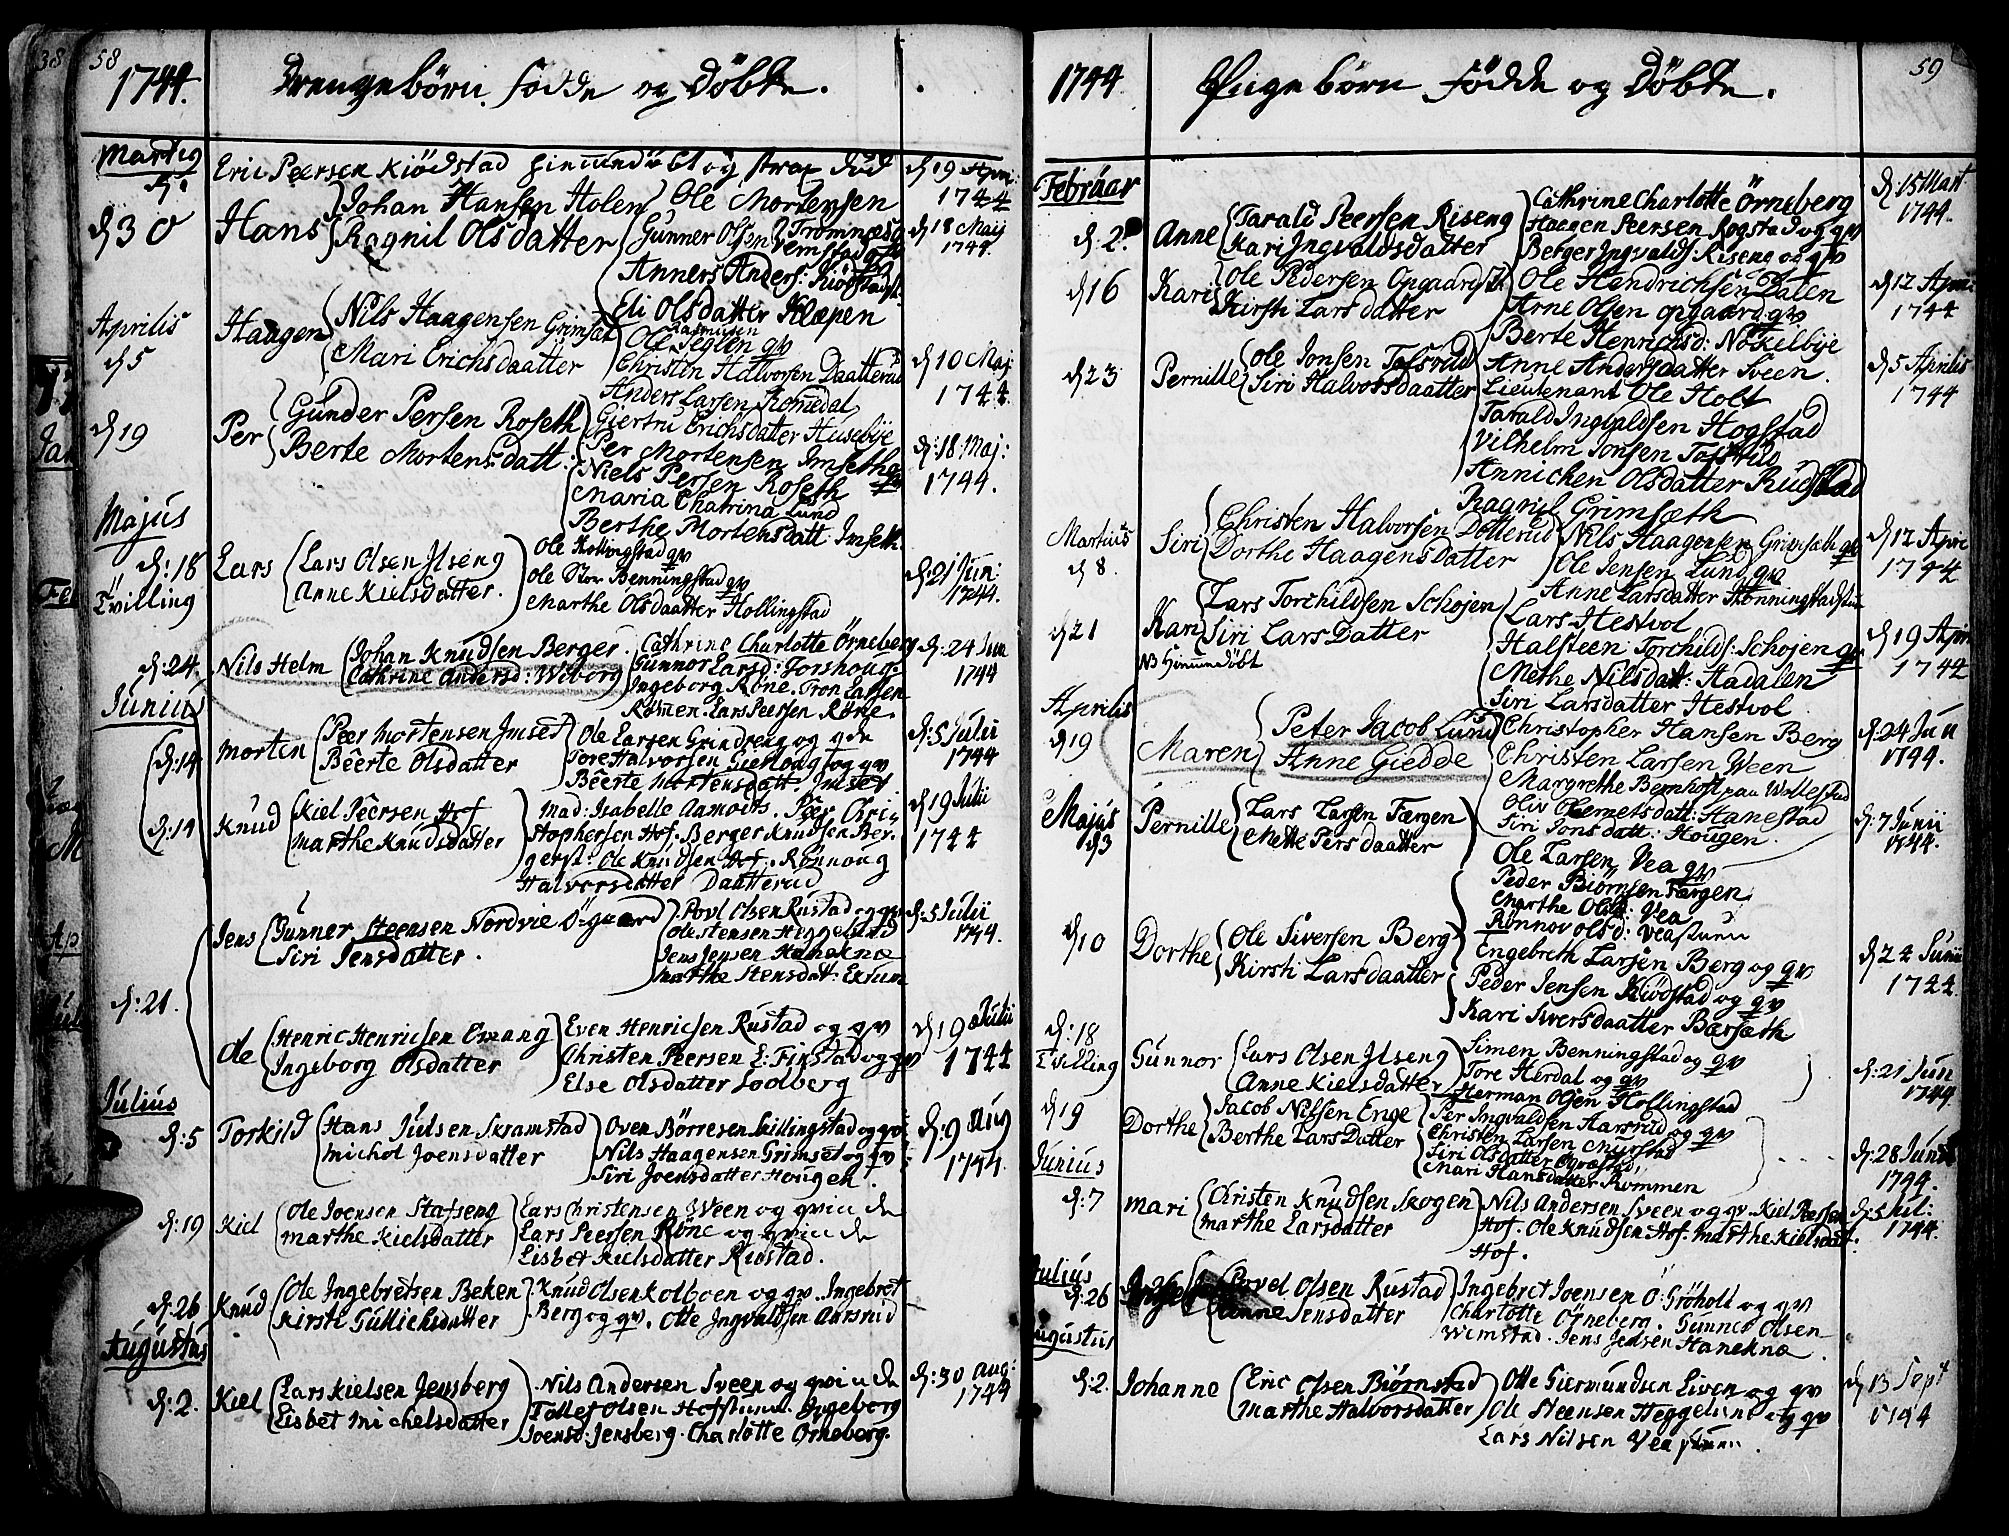 58
1744. Drengebörn födde og Döbte.
Martig
Eric Peersen Kiödstad og strax död
d: 19 Apri: 1744
d 30 Hans
Johan Hansen Holen
Ragnil Olsdatter
Ole Mortensen
Gunner Olsen
Anners Anders: Kiödstad
Eli Olsdatter Klæpen
d 18 Maij 1744.
Aprilis
d 5 Haagen
Nils Haagensen Grimsæt
Mari Erichsdaatter
Rasmusen
Ole Seglen qv
Christen Halvorsen Daatterud
Anders Larsen Romedal
d 10 Maj 1744.
d 19 Per
Gunder Persen Roseth
Berte Mortensdatt:
Giertru Erichsdatter Husebye
Per Mortensen Imseth
Niels Persen Roseth
Maria Chatrina Lund
Berthe Mortensdatt Imseth.
d: 18 Maj: 1744.
Majus
d: 18
Tvilling
Lars
Lars Olsen Ilseng
Anne Kielsdatter.
Ole Hollingstad qv
Ole Stor Benningstad qv
Marthe Olsdaatter Hollingstad
d: 21 Jun: 1744.
d: 24. Nils Helm
Johan Knudsen Berger.
Cathrine Andersd: Wiborg
Cathrine Charlotte Örneberg
Gunnor Larsd: Forshoug.
Ingeborg Röne. Tron Larsen
Römen. Lars Peersen Röne.
d: 24 Jun 1744
Junius
d: 14 Morten
Peer Mortensen Imset
Beerte Olsdatter
Ole Larsen Grindreng og qde
Tore Halvorsen og qv
Beerte Mortensdatt. Imset
d: 5 Julii 1744
d: 14 Knud
Kiel Peersen Hof
Marthe Knudsdatter
Mad: Isabelle Aamodts. Peer Chri
stophersen Hof; Berger Knudsen Ber.
gerst: Ole Knudsen Hof. Rönnoug
Halvorsdatter Daatterud
d 19 Julii 1744
d: 21.
Jens
Gunner Steensen Nordvie Ögaard
Siri Jensdatter.
Povl Olsen Rustad og qv
Ole Stensen Heggelund
Jens Jensen Haneknæ
Marthe Stensdat: Exsund
d: 5 Julii 1744.
Ole
Henric Henricsen Omang
Ingeborg Olsdatter
Even Henricsen Rustad og qv
Christen Peersen L: Finstad og qv
Else Olsdatter Lodberg
d 19 Julii 1744
Julius
d: 5 Torkild
Hans Julsen Skramstad
Michol Joensdatter
Oven Börresen Skillingstad og qv
Nils Haagensen Grimset og qv
Siri Joensdatter Hougen.
d: 9 Aug 1744.
d: 19 Kiel
Ole Joensen Stafseng
Marthe Kielsdatter
Lars Christensen Sveen og qvinde
Lars Peersen Röne og qvinde
Lisbet Kielsdatter Riustad.
d: 26 Knud
Ole Ingebretsen Beken
Kirsti Gullichsdatter
Knud Olsen Kolboen og qv. Ingebret
Berg og qv. Otte Ingvaldsen Aarsrud
Augustus
d: 2. Kiel
Lars Kielsen Jensberg
Lisbet Michelsdatter
Nils Andersen Sveen og qvinde
Tollef Olsen Hofstuen. Ingeborg
Joensd: Jensberg. Charlotte Örneberg.
d: 30 Aug: 1744
59
1744 Pigebörn födde og Döbte.
Februar
d. 2. Anne
Tarald Peersen Riseng
Kari Ingvaldsdatter
Cathrine Charlotte Örneberg
Haagen Peersen Rogstad og qv
Berger Ingvalds: Riseng og qv
d: 15 Mart 1744.
d 16 Kari
Ole Pedersen Opgaard
Kirsti Lars datter
Ole Hendrichsen Dalen
Arne Olsen opgaard qv
Berte Henrichsd: Nökelbye
d 12 Apri: 1744
d 23 Pernille
Ole Jonsen Tofsrud
Siri Halvorsdaatter
Anne Andersdaatter Sveen.
Lieutenant Ole Holt
Tarald Ingvaldsen Hogstad
Vilhelm Jonsen Tofsrud
Annichen Olsdatter Rudstad
Ragnil Grimsæth
d 5 Aprilis 1744
Martius
d 8. Siri
Christen Halvorsen Dotterud
Dorthe Haagensdatter
Nils Haagensen Grimsæth qv
Ole Jensen Lund qv
Anne Larsdatter Rönningstadstu
d 12 Apri 1744
d 21 Kari
NB Hjemmedöbt
Lars Torchildsen Schojen
Siri Lars Datter
Lars Hestvol
Halsteen Torchilds: Schojen qv
Methe Nilsdatt: Hadalen
Siri Larsdatter Hestvol
d 19 Apri 1744
Aprilis
d 19 Maren
Peter Jacob Lund
Anne Giedde
Christopher Hansen Berg
Christen Larsen Veen
Margrethe Bernhoft paa Wollestad
Oliv Clemetsdatt: Hanestad
Siri Jonsdatt: Hougen.
d: 24 Jun 1744.
Majus
d 3 Pernille
Lars Larsen Færgen
Mette Persdaatter
Ole Larsen Vea qv
Peder Biörnsen Færgen
Marthe Olsd: Vea
Rönnov Olsd: Veastuen
d: 7 Junii 1744.
d 10 Dorthe
Ole Siversen Berg
Kirsti Larsdaatter
Engebreth Larsen Berg og qv
Peder Jensen Kiödstad og qv
Kari Siversdaatter Bærsæth
d 24 Junii 1744.
d: 18
Tvilling
Gunnor
Lars Olsen Ilseng
Anne Kielsdatter
Simen Benningstad og qv
Tore Herdal og qv
Herman Olsen Hollingstad
d: 21 Jun 1744.
d 19 Dorthe
Jacob Nilsen Enge
Berthe Lars Datter
Per Ingvaldsen Harsrud
Christen Larsen Myrstad og qv
Siri Olsdatter
Mari Hansdatter Rommen
d: 28 Junii 1744.
Junius
d: 7 Mari
Christen Knudsen Skogen
Marthe Larsdatter
Nils Andersen Sveen og qv. Kiel Peersen
Hof. Ole Knudsen Hof. Marthe Kielsdatt:
Hof.
d: 5 Jul: 1744.
Julius
d: 26
Povel Olsen Rustad
Anne Jensdatter
Ingebret Joensen Ö: Gröholt og qv
Charlotte Örneberg. Gunner Olsen
Wimstad. Jens Jensen Haneknæ
Augustus
d: 2. Johanne
Eric Olsen Biörnstad
Marthe Halvorsdatter
Otte Giermundsen Liven og qv
Ole Steensen Heggelund og qv
Lars Nilsen Vea stuen.
d 13 Sept 1744